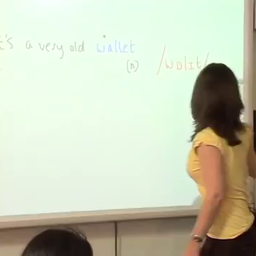 t's a very old wallet
(n) /wɒlɪt/